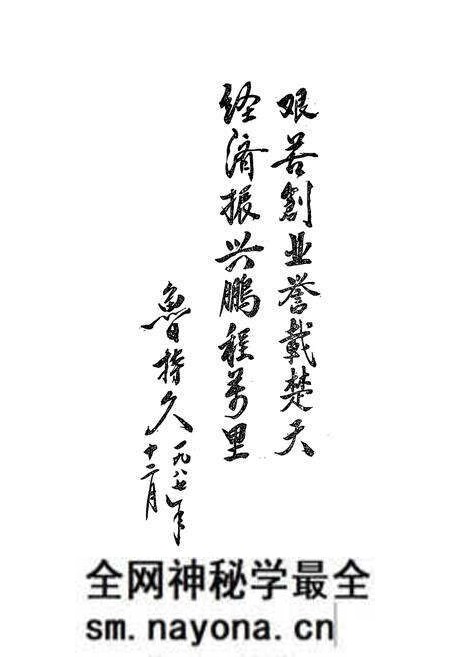 艰苦創业誉載楚天
经濟振兴鵬程万里
魯持久
一九八七年
十二月
全网神秘学最全
sm.nayona.cn